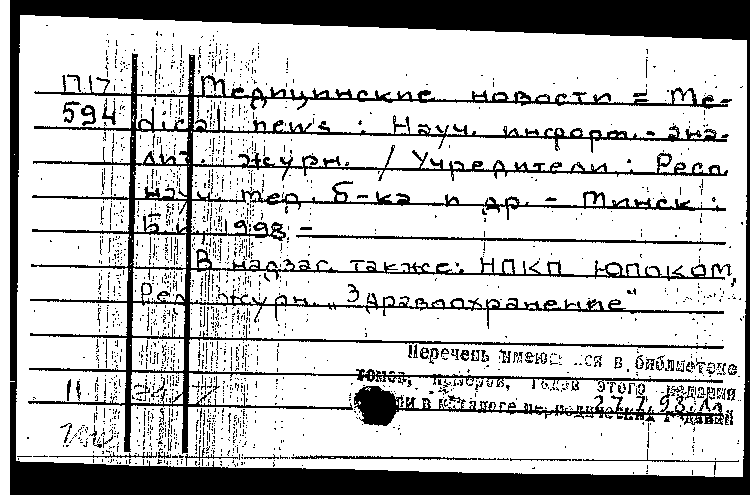 П17 Медицинские новости = Ме-
594 dical news : Науч. информ.-ана-
лит. журн. / Учредители : Респ.
науч. мед. б-ка и др. - Минск :
Б.и., 1998 -
В надзаг. также: НПКП ЮПОКОМ,
Ред. журн. „Здравоохранение"
Перечень имеющихся в библиотеке
томов, номеров, годов этого издания
11
или в каталоге периодических изданий